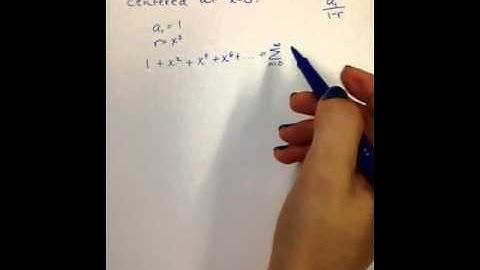 centered at x=0.
a₁/(1-r)
a₁ = 1
r = x²
1 + x² + x⁴ + x⁶ + ... = ∑ n=0